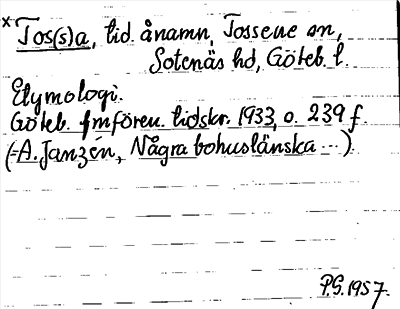 *Tos(s)a, tid. ånamn, Tossene sn,
Sotenäs hd, Göteb. l.
Etymologi.
Göteb. fmfören. tidskr. 1933, s. 239 f.
(=A. Janzén, Några bohuslänska ...).
P.G. 1957.